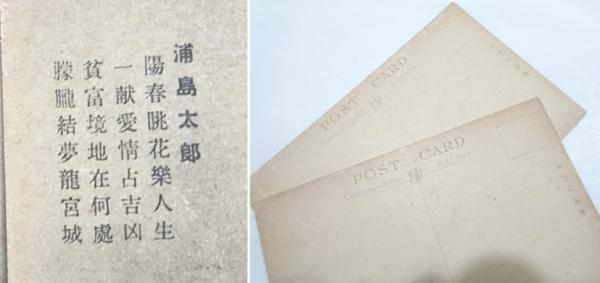 浦島太郎
陽春眺花樂人生
一献愛情占吉凶
貧富境地在何處
朦朧結夢龍宮城
POST CARD
Correspondence
Address
POST CARD
Correspondence
Address